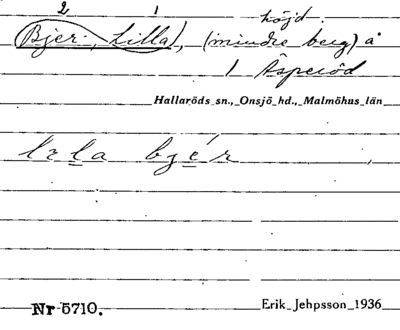 2 1 höjd.
Bjer-, Lilla, (mindre berg) å
1 Äsperöd
Hallaröds sn., Onsjö hd., Malmöhus län
lela bjér
Nr 5710. Erik Jehpsson 1936